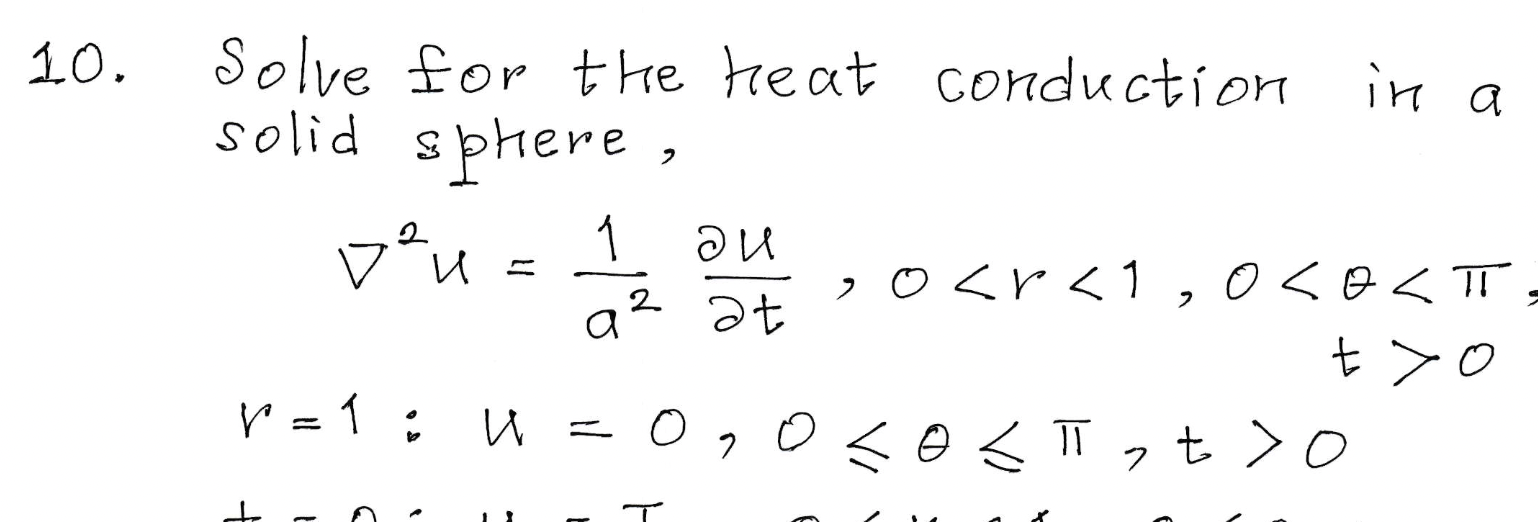 10. Solve for the heat conduction in a
solid sphere,
∇²u = 1/a² ∂u/∂t , 0 < r < 1 , 0 < θ < π ,
t > 0
r = 1 : u = 0 , 0 ≤ θ ≤ π , t > 0